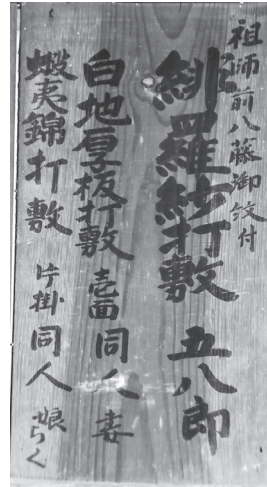 祖師前八藤御紋付
緋羅紗打敷 五八郎
白地厚板打敷 壱面 同人 妻
蝦夷錦打敷 片掛 同人 娘らく